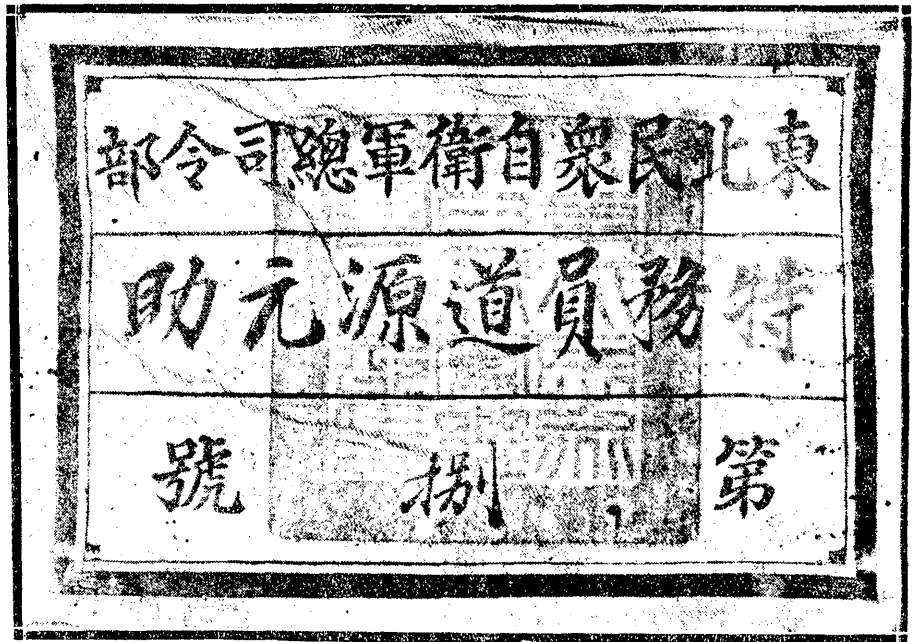 東北民衆自衛軍總司令部
特務員道源元助
第捌號